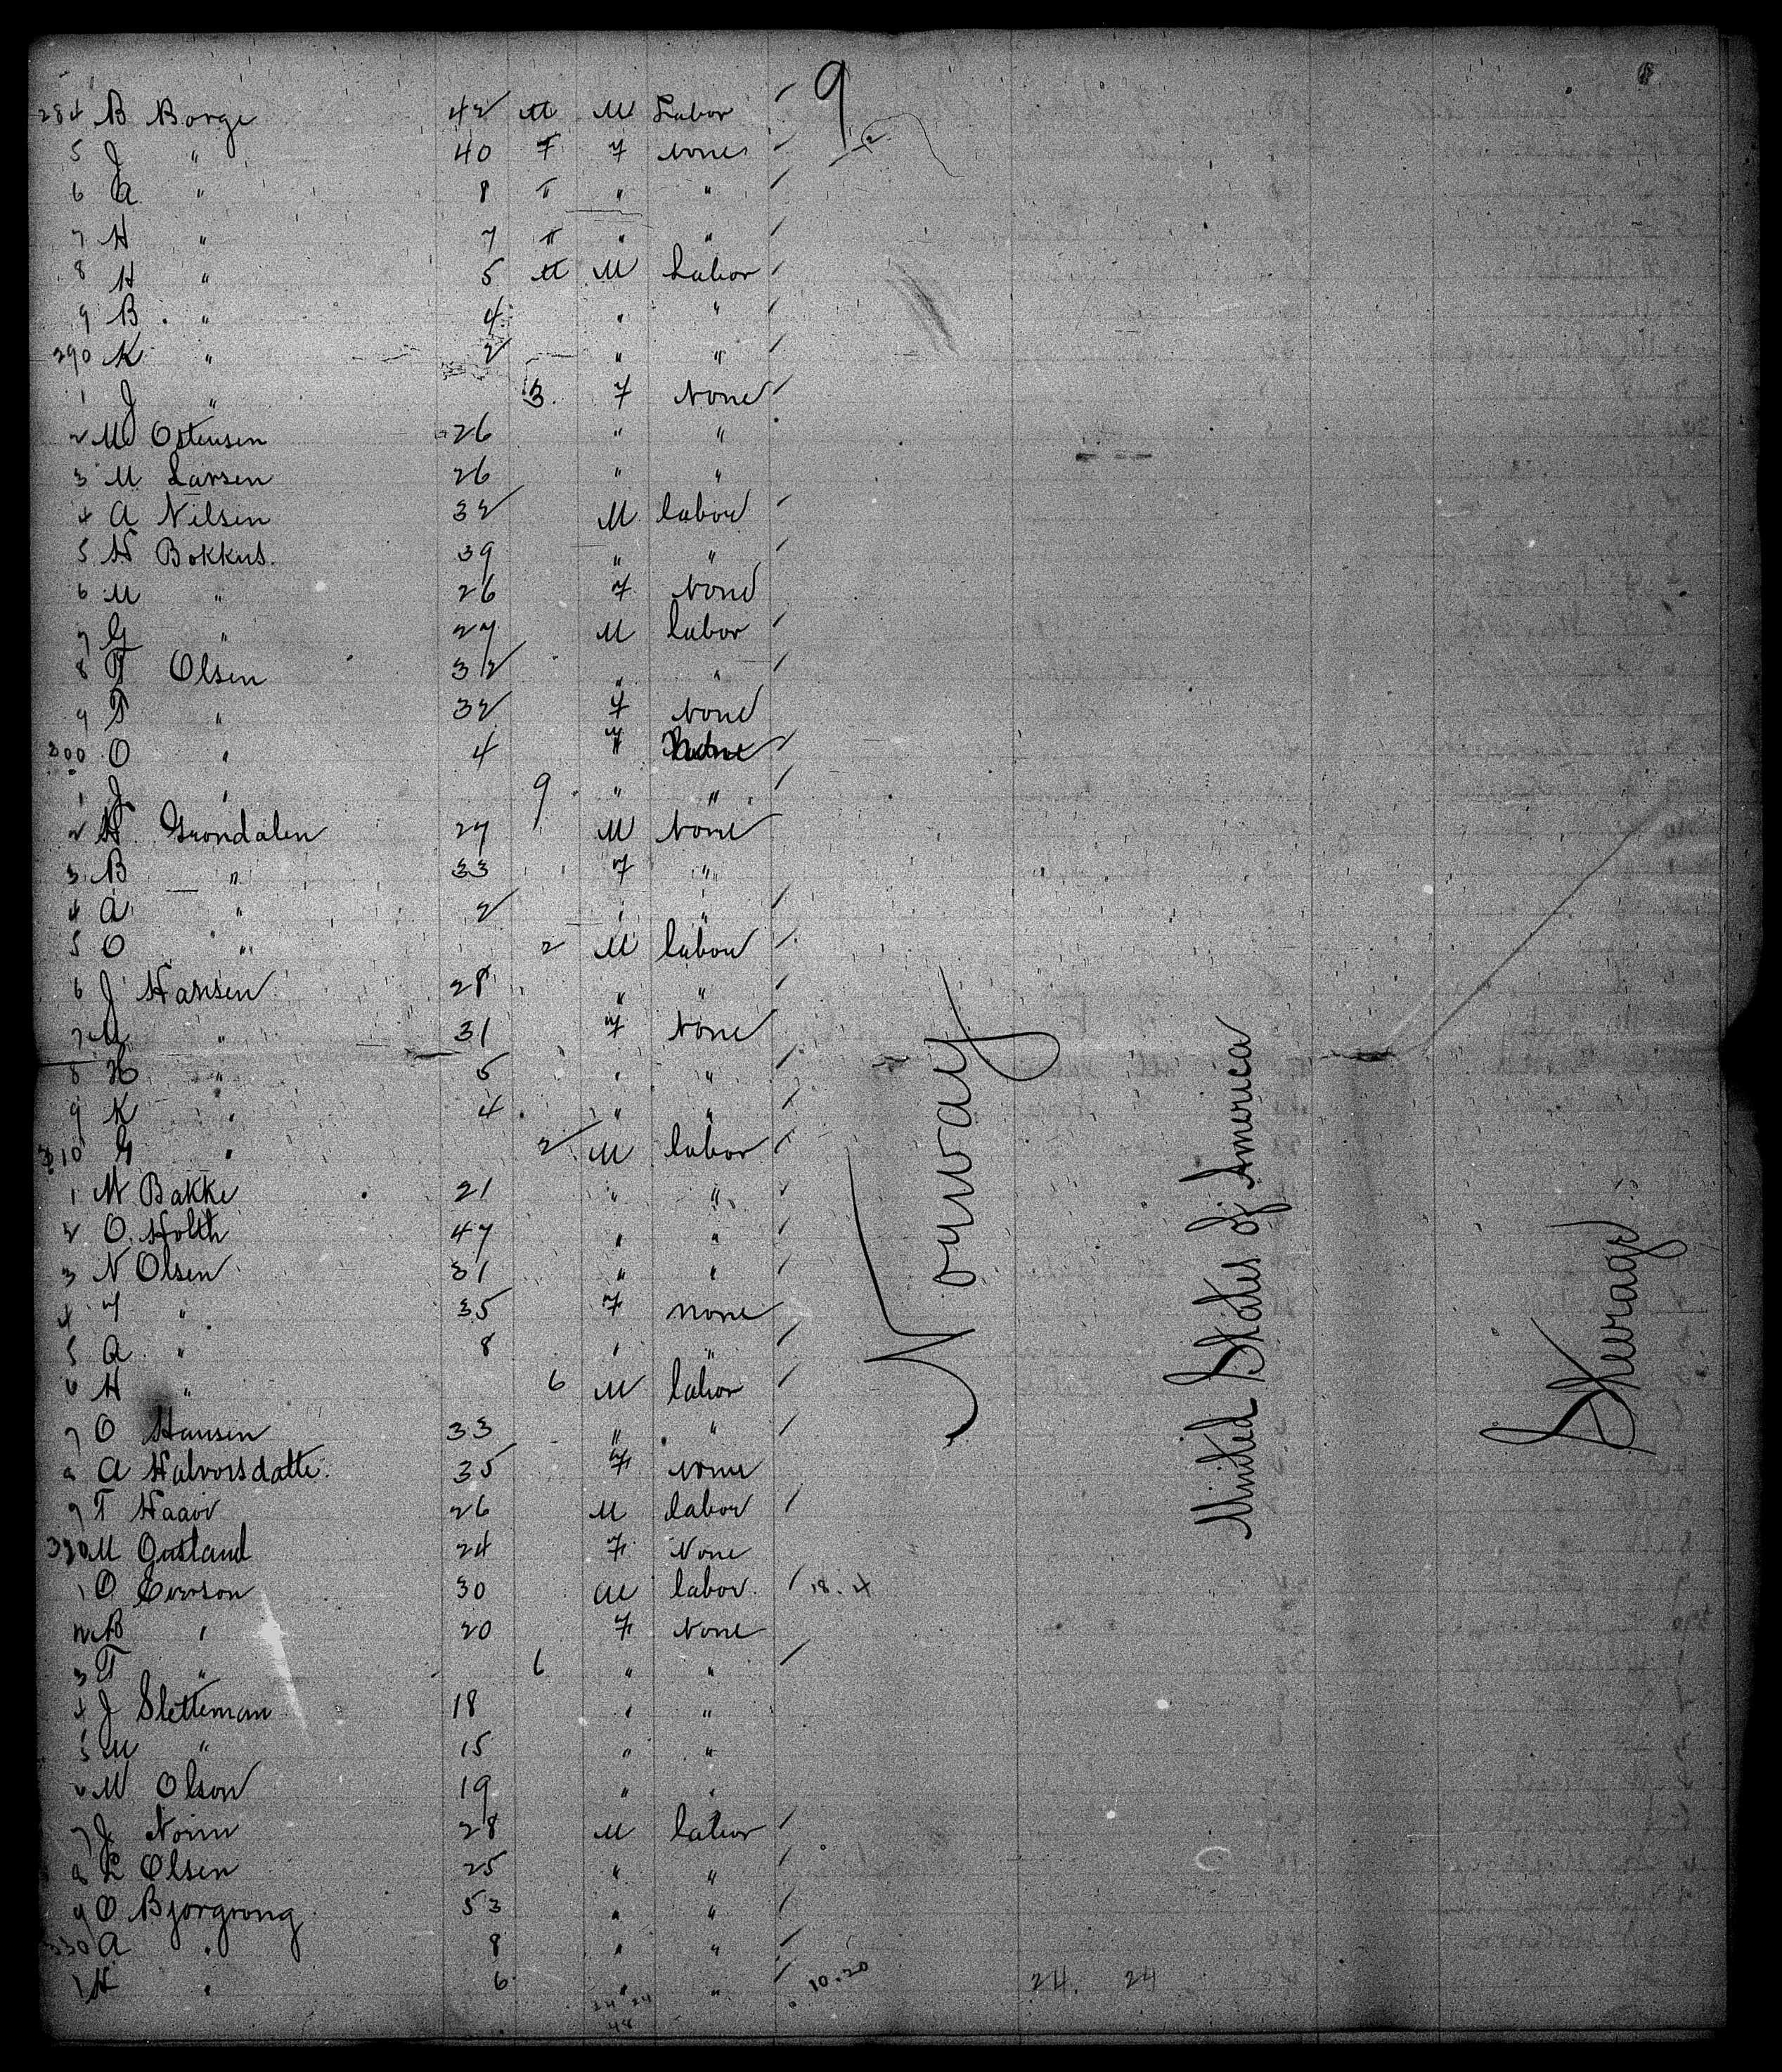 9
284 B Borge 42 M M Labor /
5 J " 40 F F None /
6 A " 8 " " " /
7 H " 7 " " " /
8 H " 5 M M Labor /
9 B " 4 " " /
290 K " 2 " " /
1 J " 3 F None /
2 M Ostensen 26 " "
3 M Larsen 26 " "
4 A Nilsen 32 M labor /
5 H Bokkus. 39 " " /
6 M " 26 F None
7 G " 27 M labor /
8 T Olsen 32 " " /
9 T " 32 F None
300 O " 4 " /
1 J " 9 " " /
2 H Grondalen 27 M None /
3 B " 33 F "
4 A " 2 " " /
5 O " 2 M labor /
6 J Hansen 28 " " /
7 M " 31 F None
8 H " 5 " " /
9 K " 4 " " /
310 G " 2 M labor /
1 M Bakke 21 " " /
2 O. Holth 47 " " /
3 N Olsen 31 " " /
4 F " 35 F none
5 A " 8 " " /
6 H " 6 M labor /
7 O Hansen 33 " " /
8 A Halvorsdatte. 35 F None
9 T Haavi 26 M labor /
320 M Oustland 24 F None
1 O Everson 30 M labor / 18. 4
2 B " 20 F None
3 T " 6 " " /
4 J Sletteman 18 " "
5 M " 15 " "
6 M Olson 19 " "
7 J Noim 28 M labor /
8 L Olsen 25 " " /
9 O Bjorgrong 53 " " /
330 A " 8 " " /
1 H " 6 " " / 10.20 24 24
24 24
48
Norway
United States of America
Steerage